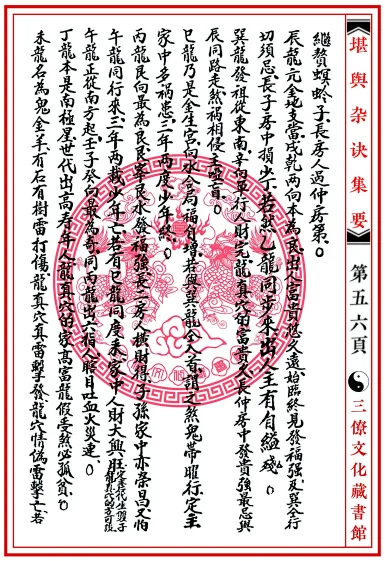 堪輿杂诀集要
第五六頁
三僚文化藏書館
繼贅螟蛉子長房人过仲房第。
辰龍元金地支當戌乾兩向本為良出入富貴悠久遠始臨終見發福强及巽仝行
切須忌長子房中損少丁若然乙龍同步來出人主有自縊残。
巽龍發祖從東南辛向單行人財完龍真穴的富貴久長仲房中發貴强最忌與
辰同路走煞禍相侵主啞盲。
巳龍乃是金生宫向水合局福自增若與巽龍仝入首謂之煞鬼帶曜行定主
家中多禍患三年兩度少年終。
丙龍艮向最為良艮峯艮水發福强長二房人機財得子孫家中亦荣昌又怕
午龍同行來三年两載少年亡若有巳龍同度来家中人財大興旺
午龍正從南方起壬子癸向最為奇同丙龍出六指人瞎目吐血火災連。
丁龍本是南極星世代出高寿年人龍真穴的家髙富龍假受煞必孤貧。
未龍名為鬼金羊有石有樹雷打傷龍真穴真雷擊發龍穴情偽雷擊亡若